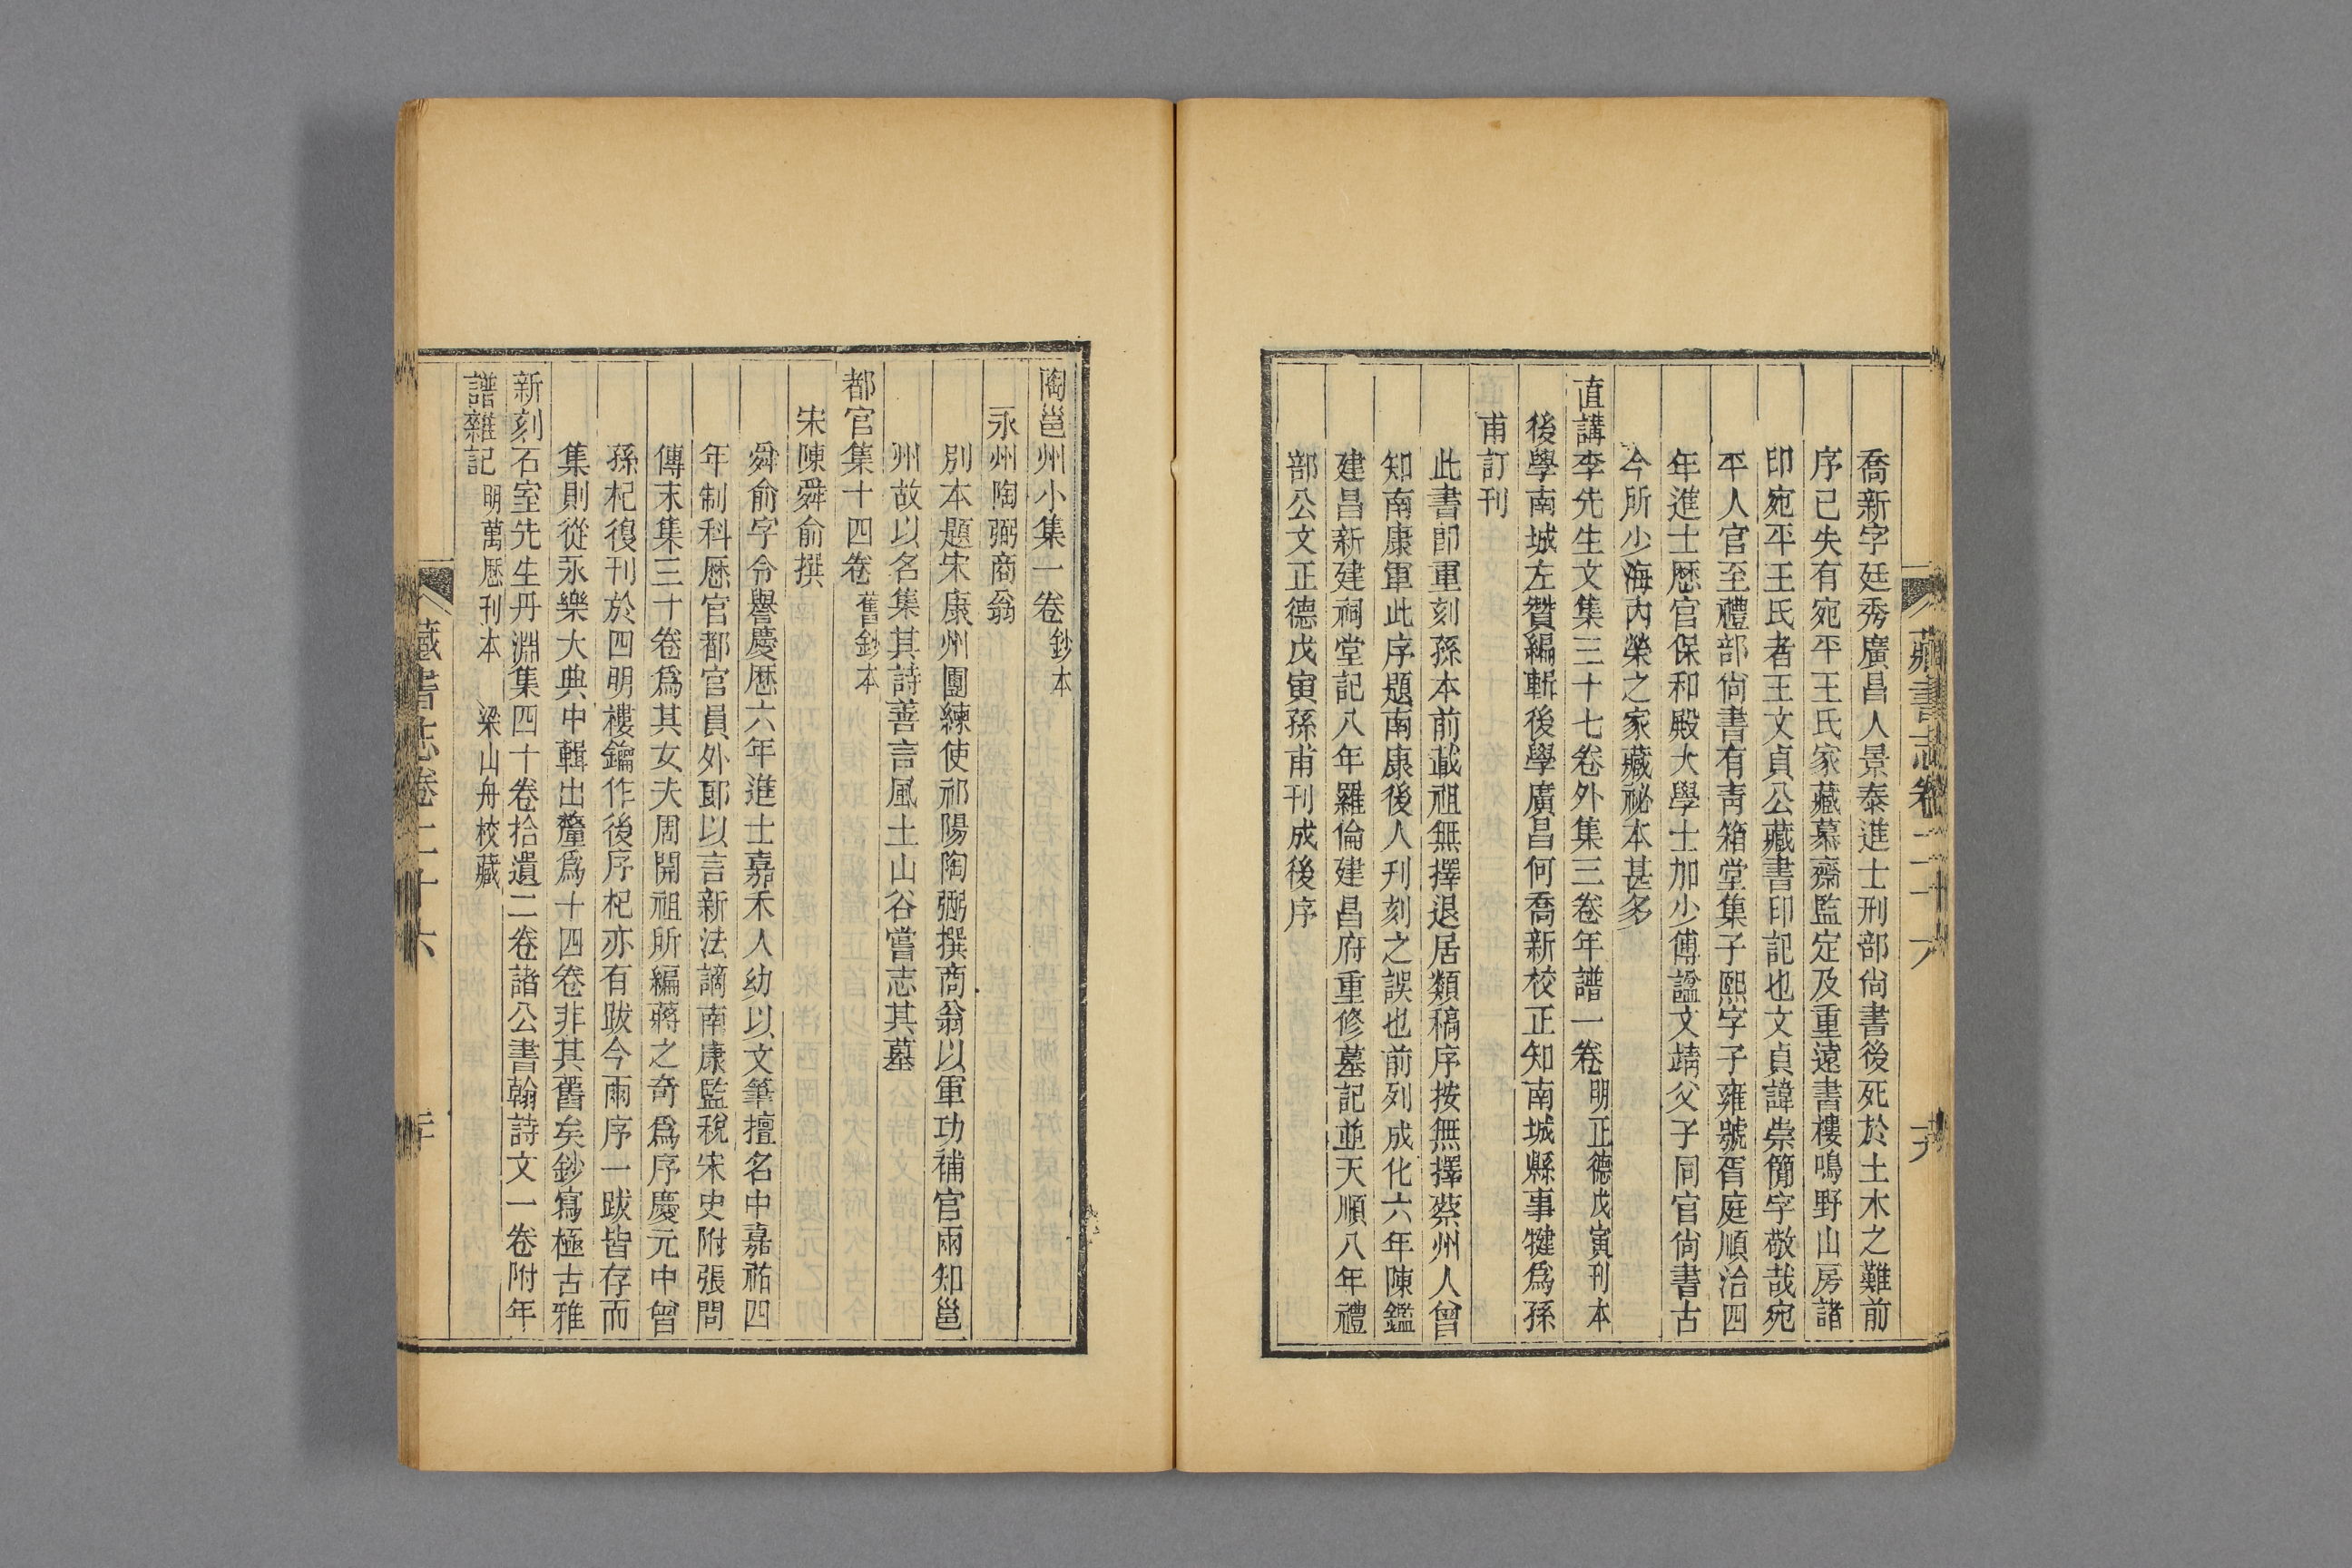 喬新字廷秀廣昌人景泰進士刑部尙書後死於土木之難前
序已失有宛平王氏家藏慕齋監定及重遠書樓鳴野山房諸
印宛平王氏者王文貞公藏書印記也文貞諱崇簡字敬哉宛
平人官至禮部尙書有靑箱堂集子熙字子雍號胥庭順治四
年進士歷官保和殿大學士加少傅謚文靖父子同官尙書古
今所少海內榮之家藏祕本甚多
直講李先生文集三十七卷外集三卷年譜一卷 明正德戊寅刊本
後學南城左贊編輯後學廣昌何喬新校正知南城縣事犍爲孫
甫訂刊
此書卽重刻孫本前載祖無擇退居類稿序按無擇蔡州人曾
知南康軍此序題南康後人刊刻之誤也前列成化六年陳鑑
建昌新建祠堂記八年羅倫建昌府重修墓記並天順八年禮
部公文正德戊寅孫甫刊成後序
陶邕州小集一卷 鈔本
永州陶弼商翁
別本題宋康州團練使祁陽陶弼撰商翁以軍功補官兩知邕
州故以名集其詩善言風土山谷嘗志其墓
都官集十四卷 舊鈔本
宋陳舜俞撰
舜俞字令舉慶歷六年進士嘉禾人幼以文筆擅名中嘉祐四
年制科歷官都官員外郎以言新法謫南康監稅宋史附張問
傳末集三十卷爲其女夫周開祖所編蔣之奇爲序慶元中曾
孫杞復刊於四明樓鑰作後序杞亦有跋今兩序一跋皆存而
集則從永樂大典中輯出釐爲十四卷非其舊矣鈔寫極古雅
新刻石室先生丹淵集四十卷拾遺二卷諸公書翰詩文一卷附年
譜雜記 明萬歷刊本 梁山舟校藏
藏書志卷二十六